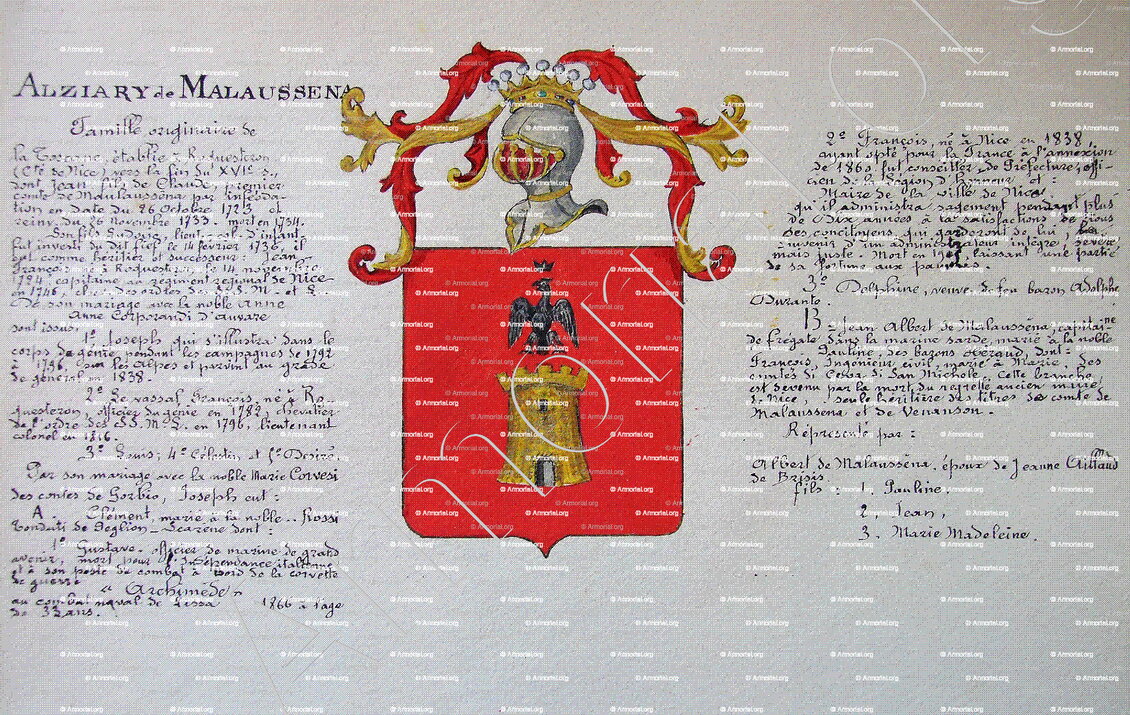 ALZIARY de MALAUSSENA
Famille originaire de
la Toscane, établie à Roquestéron
(Cté de Nice) vers la fin du XVIe s.,
dont Jean fils de Claude, premier
comte de Malaussena par inféoda-
tion en date du 26 Octobre 1723 et
réinv. du 26 novembre 1733. mort en 1734.
Son fils Ludovic, lieut-col. d'infant.
fut investi du dit fief le 14 février 1736, il
eut comme héritier et successeur: Jean
François né à Roquestéron le 14 novembre
1724, capitaine au régiment régional de Nice
en 1746, ch. des ordres de S. M. et L.
De son mariage avec la noble Anne
Anne Corporandi d'auvare
sont issus:
1° Joseph qui s'illustra dans le
corps de génie, pendant les campagnes de 1792
à 1796, sur les Alpes et parvint au grade
de général en 1838.
2° Le vassal François, né à Ro-
questeron, officier du génie en 1782, chevalier
de l'ordre des S.S. M. & L. en 1796, lieutenant
colonel en 1816.
3° Louis; 4° Célestin et 5° Désiré
Par son mariage avec la noble Marie Corvesi
des comtes de Gorbio, Joseph eut:
A. Clément, marié à la noble .. Rossi
Tonduti de Peglion-Scarène dont:
1° Gustave, officier de marine de grand
avenir, mort pour l'indépendance italienne
et à son poste de combat à bord de la corvette
de guerre
« Archimède »
au combat naval de Lissa 1866 à l'age
de 32 ans.
2° François, né à Nice en 1838,
ayant opté pour la France à l'annexion
de 1860 fut conseiller de Préfecture, offi-
cier de la Légion d'Honneur et
Maire de la ville de Nice
qu'il administra sagement pendant plus
de Dix années à la satisfactions de tous
des concitoyens qui garderont de lui, le
souvenir d'un administrateur intègre, sévère
mais juste. Mort en laissant une partie
de sa fortune aux pauvres.
3° Delphine, veuve d. feu baron Adolphe
Durante.
B - Jean Albert de Malausséna, capitai-ne
de frégate dans la marine sarde, marié à la noble
Pauline, des barons Héraud, dont:
François, ingénieur civil, marié à Marie, des
comtes di Ceva di San Michele. Cette branche
est devenu par la mort du regretté ancien maire
de Nice, seule héritière des titres de comte de
Malaussena et de Venanson.
Représenté par:
Albert de Malausséna, époux de Jeanne Gillaud
de Brisis
fils: 1. Pauline,
2. Jean,
3. Marie Madeleine.
© Armorial.org